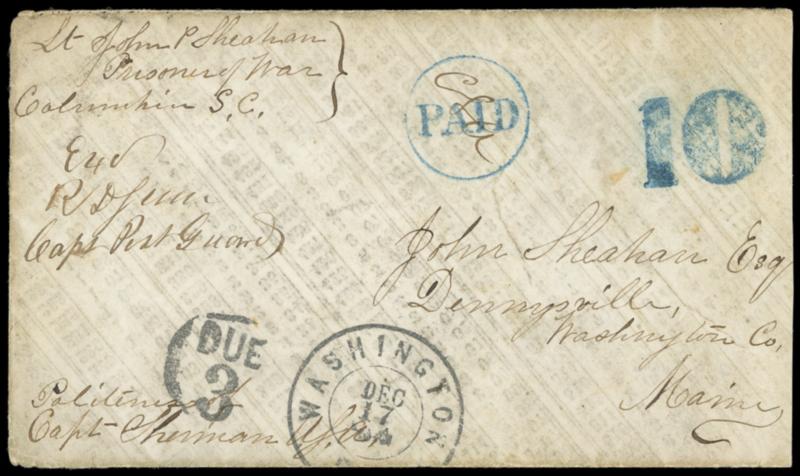 Lt John P Sheahan
Prisoner of War
Columbia S.C.
Exd
Capt Post Guard
PAID
10
John Sheahan Esq
Dennysville,
Washington Co,
Maine
DUE
3
WASHINGTON
DEC
17
Politeness of
Capt Sherman